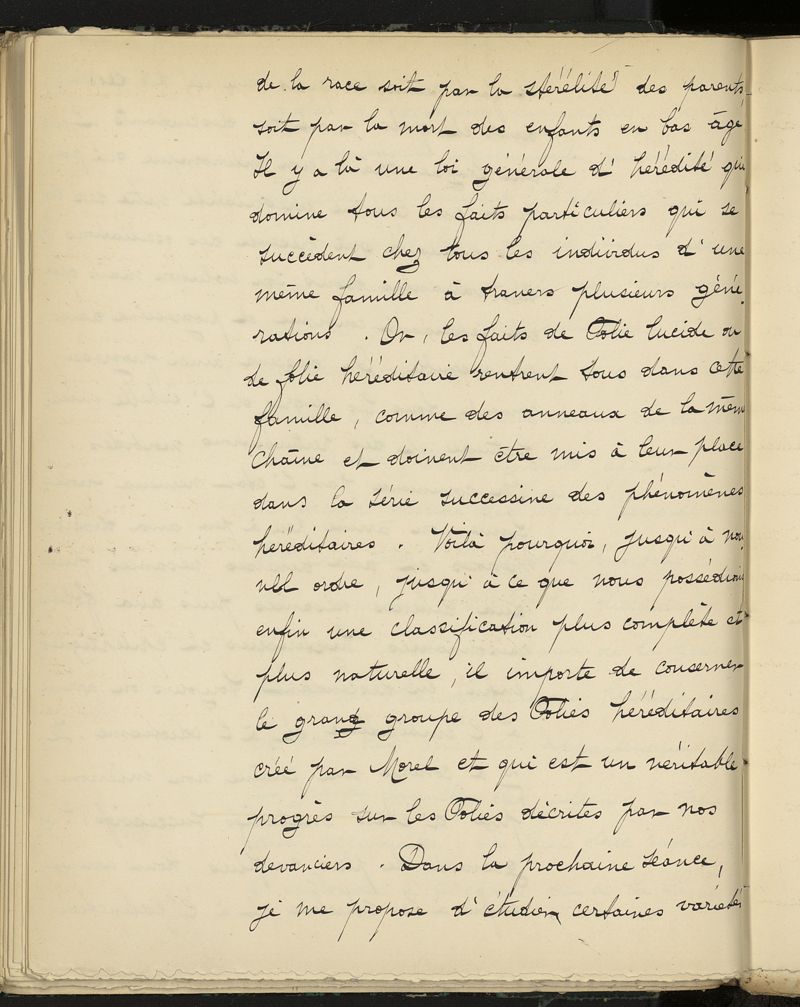 de la race soit par la stérélité des parents,
soit par la mort des enfants en bas âge.
Il y a là une loi générale d' hérédité qui
domine tous les faits particuliers qui se
succèdent chez tous les individus d' une
même famille à travers plusieurs géné
rations . Or, les faits de Folie lucide ou
de folie héréditaire rentrent tous dans cette
famille, comme des anneaux de la même
chaîne et doivent être mis à leur place
dans la série successive des phénomènes
héréditaires . Voilà pourquoi, jusqu'à nou
vel ordre, jusqu'à ce que nous possédions
enfin une classification plus complète et
plus naturelle, il importe de conserver
le grand groupe des Folies héréditaires
créé par Morel et qui est un véritable
progrès sur les Folies décrites par nos
devanciers . Dans la prochaine séance,
je me propose d' étudier certaines variétés